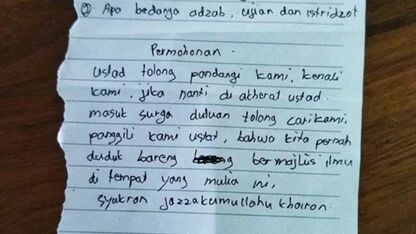 ② Apa bedanya adzab, ujian dan istridzot
Permohonan.
ustad tolong pandangi kami, kenali
kami, jika nanti di akherat ustad
masuk surga duluan tolong carikami,
panggili kami ustat, bahwa kita pernah
duduk bareng bermajlis ilmu
di tempat yang mulia ini,
syukron jazzakumullohu khoiron.